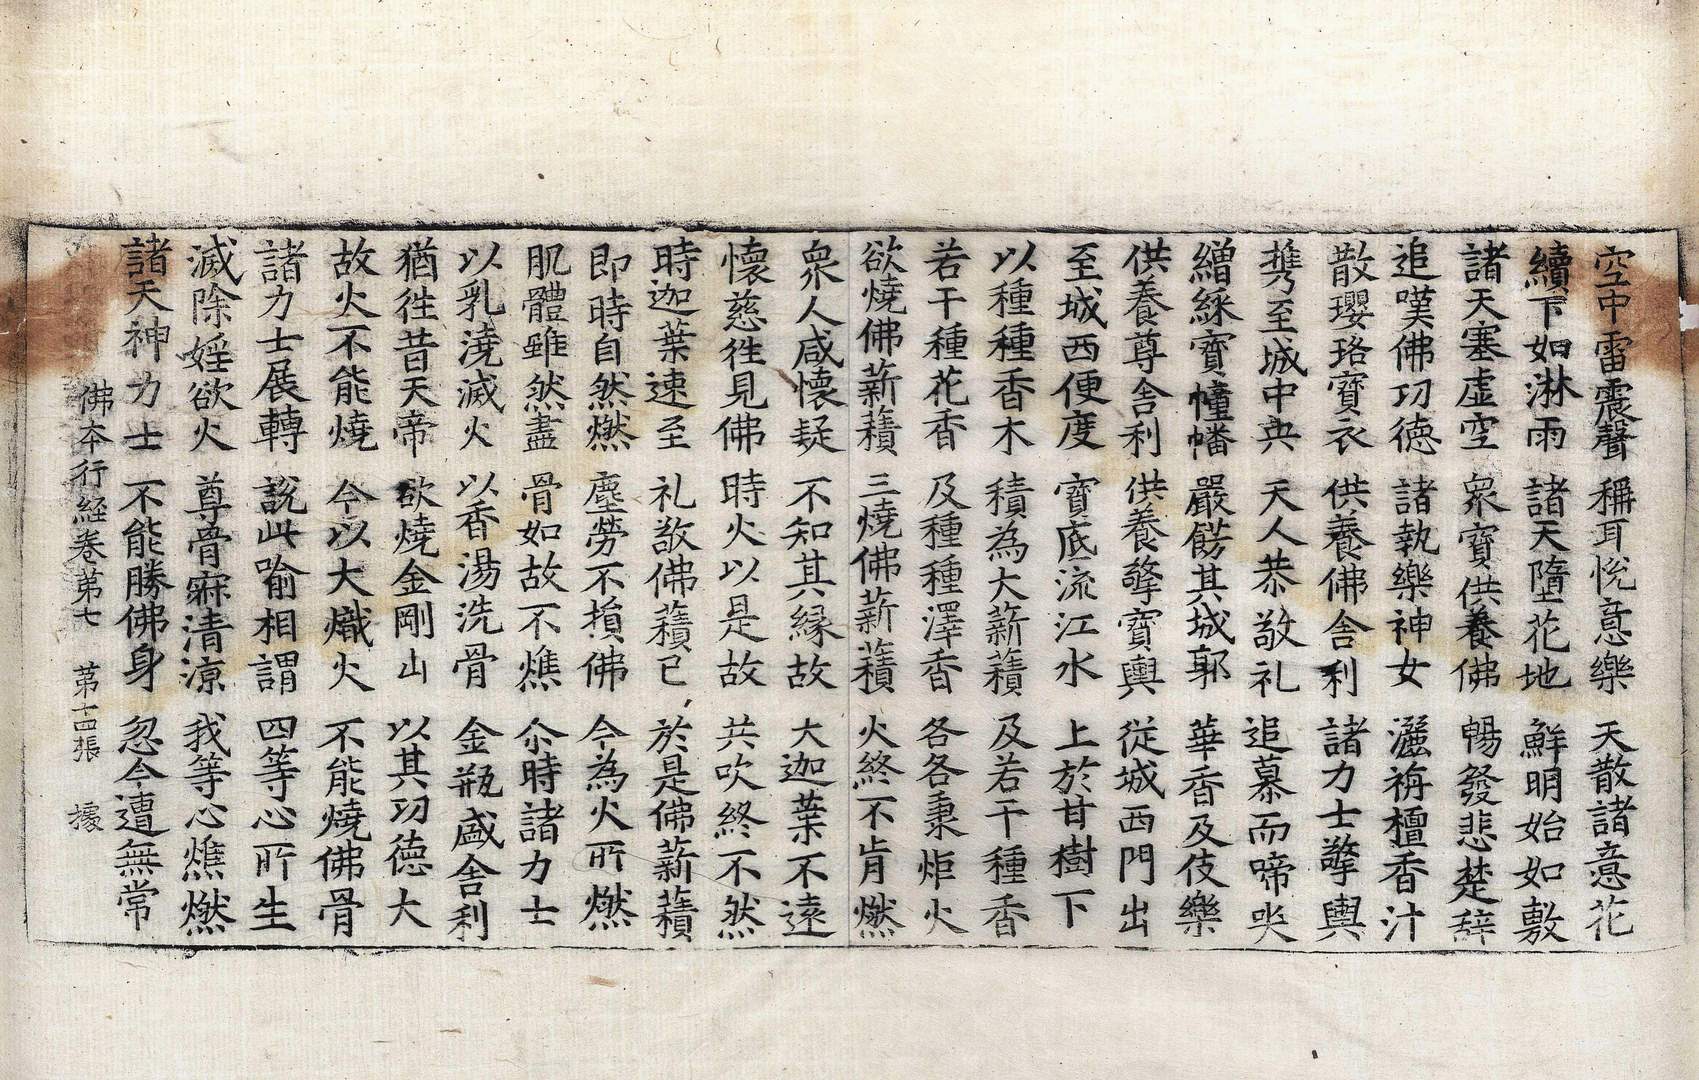 空中雷震聲 稱耳悅意樂 天散諸意花
續下如淋雨 諸天墮花地 鮮明始如敷
諸天塞虛空 衆寶供養佛 暢發悲楚辭
追嘆佛功徳 諸執樂神女 灑栴檀香汁
散瓔珞寶衣 供養佛舎利 諸力士擎輿
擕至城中央 天人恭敬礼 追慕而啼哭
繒綵寶幢幡 嚴餝其城郭 華香及伎樂
供養尊舎利 供養擎寶輿 從城西門出
至城西便度 寶底流江水 上於甘樹下
以種種香木 積為大薪䕆 及若干種香
若干種花香 及種種澤香 各各秉炬火
欲燒佛薪䕆 三燒佛薪䕆 火終不肯燃
衆人咸懷疑 不知其縁故 大迦葉不遠
懷慈徃見佛 時火以是故 共吹終不然
時迦葉速至 礼敬佛䕆已 於是佛薪䕆
即時自然燃 塵勞不損佛 今為火所燃
肌體雖然盡 骨如故不燋 尒時諸力士
以乳澆滅火 以香湯洗骨 金瓶盛舎利
猶徃昔天帝 欲燒金剛山 以其功徳大
故火不能燒 今以大熾火 不能燒佛骨
諸力士展轉 說此喻相謂 四等心所生
滅除婬欲火 尊骨寐清涼 我等心燋燃
諸天神力士 不能勝佛身 忽今遭無常
佛本行経巻第七 第十四張 㨿